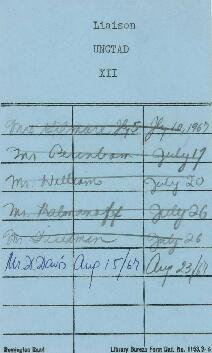 Liaison
UNCTAD
XII
Mr. July 10, 1967
Mr. July 17
Mr. William July 20
Mr. Kalmanoff July 26
Mr. July 26
Mr. D. Davis Aug 15/67 Aug 23/67
Remington Rand Library Bureau Form Cat. No. 1153.3-6